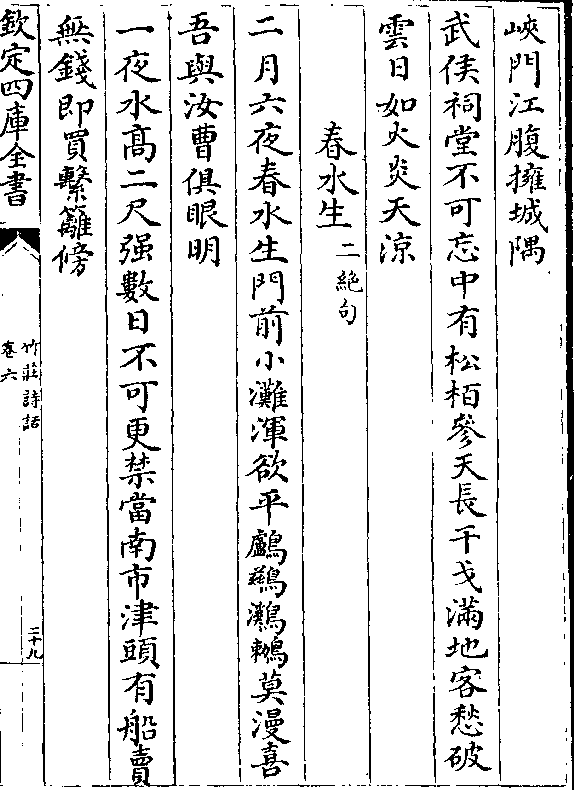 峽門江腹擁城隅
武侯祠堂不可忘中有松栢參天長干戈滿地客愁破
雲日如火炎天涼
春水生二絶句
二月六夜春水生門前小灘渾欲平鸕鷀鸂鶒莫漫喜
吾與汝曹俱眼明
一夜水髙二尺强數日不可更禁當南市津頭有船賣
無錢即買繫籬傍
欽定四庫全書
竹莊詩話
卷六
二十九